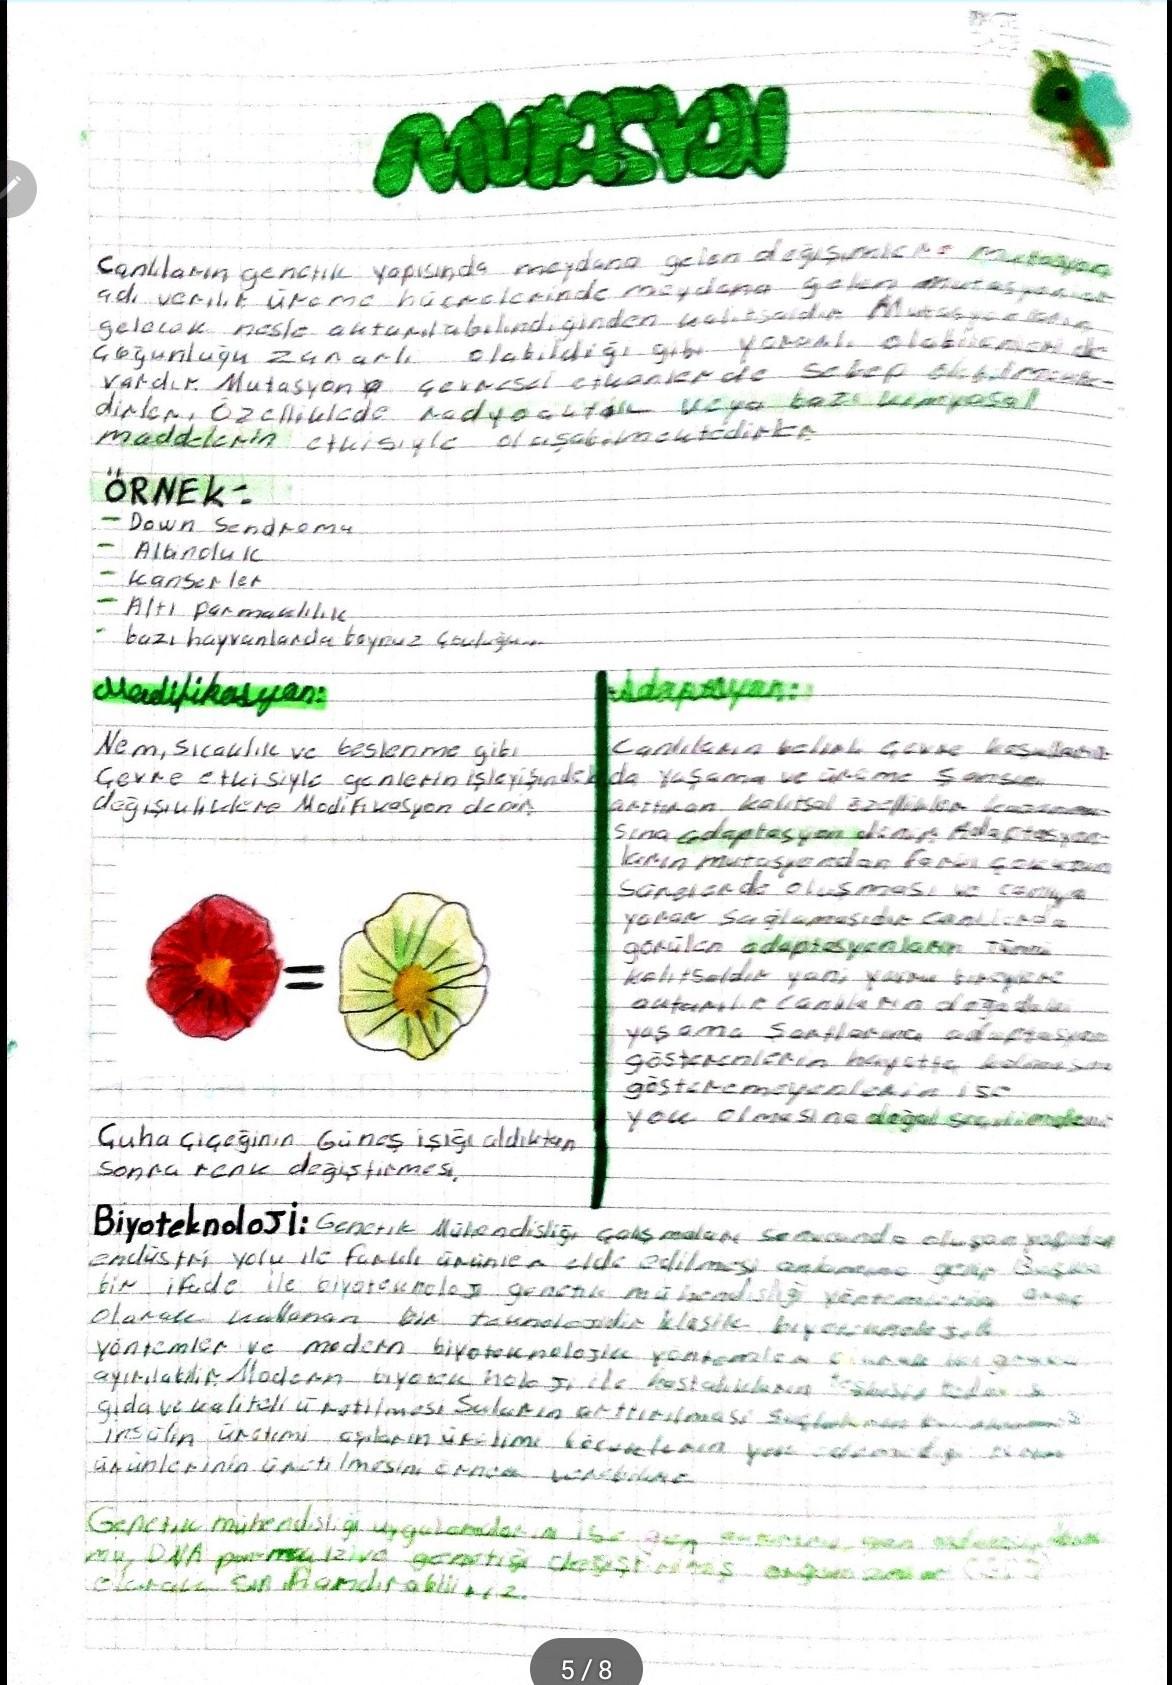 MUTASYON
Canlıların genetik yapısında meydana gelen değişimlere mutasyon
adı verilir üreme hücrelerinde meydana gelen mutasyonlar
gelecek nesle aktarılabilindiğinden kalıtsaldır Mutasyonların
çoğunluğu zararlı olabildiği gibi yararlı olabilenleri de
vardır. Mutasyona çevresel etkenler de sebep
dirler, Özelliklede radyoaktik veya bazı kimyasal
maddelerin etkisiyle oluşabilmektedirler
ÖRNEK:
- Down Sendromu
- Albinoluk
- Kanserler
- Altı parmaklılık
- bazı hayvanlarda boynuz
Modifikasyon:
Nem, sıcaklık ve beslenme gibi
Çevre etkisiyle genlerin işleyişindeki
değişikliklere Modifikasyon denir.
Çuha çiçeğinin Güneş ışığı aldıktan
sonra renk değiştirmesi.
Adaptasyon:
Canlıların belirli çevre
da yaşama ve üreme şansını
arttıran kalıtsal özellikler
sına adaptasyon denir. Adaptasyon-
ların mutasyondan farkı çok uzun
sürelerde oluşması ve canlıya
yarar sağlamasıdır canlılarda
görülen adaptasyonların tümü
kalıtsaldır yani yavru bireylere
aktarılır canlıların doğadaki
yaşama şartlarına adaptasyon
gösterenlerin hayatta kalması
gösteremeyenlerin ise
yok olmasına doğal seçilim denir
BiyoteknoloJi: Genetik Mühendisliği çalışmaları sonucunda oluşan
endüstri yolu ile farklı ürünler elde edilmesi anlamına gelir Başka
bir ifade ile biyoteknoloji genetik mühendisliği yöntemlerini araç
olarak kullanan bir teknolojidir klasik biyoteknolojik
yöntemler ve modern biyoteknolojik yöntemler olarak iki gruba
ayrılabilir. Modern biyoteknoloji ile hastalıkların
gıda ve kaliteli üretilmesi Suların arttırılması
insülin üretimi aşıların üretimi
ürünlerinin üretilmesini örnek verebiliriz
Genetik mühendisliği uygulamalarını ise gen aktarımı, gen
DNA parmak izi ve genetiği değiştirilmiş
olarak sınıflandırabiliriz.
5 / 8